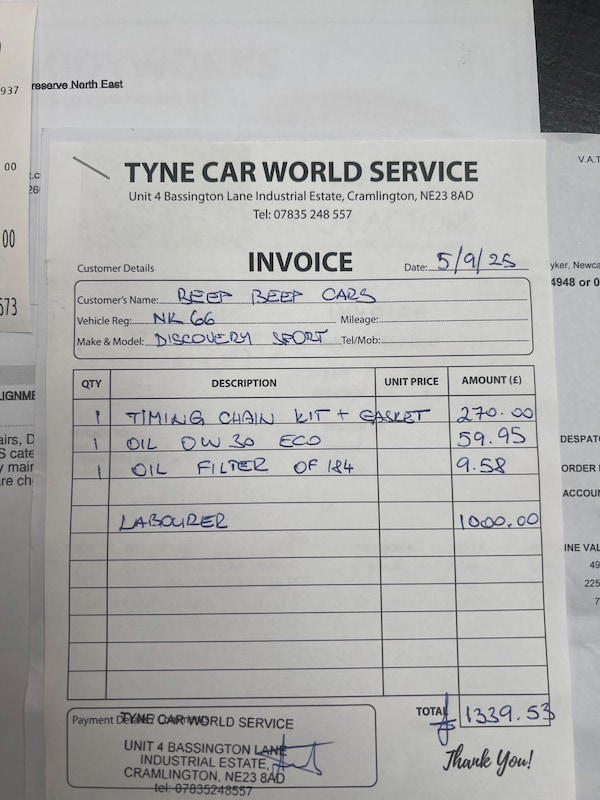 937
reserve North East
00
TYNE CAR WORLD SERVICE
Unit 4 Bassington Lane Industrial Estate, Cramlington, NE23 8AD
Tel: 07835 248 557
V.A.T
00
Customer Details
INVOICE
Date: 5/9/25
yker, Newca
4948 or 0
573
Customer's Name: BEEP BEEP CARS
Vehicle Reg: NK 66 Mileage:
Make & Model: DISCOVERY SPORT Tel/Mob:
QTY DESCRIPTION UNIT PRICE AMOUNT (£)
IGNME
1 TIMING CHAIN KIT + GASKET 270.00
1 OIL 0W30 ECO 59.95
1 OIL FILTER OF 184 9.58
LABOURER 1000.00
airs, D
S cate
y mair
are ch
DESPAT
ORDER
ACCOU
INE VAL
49
225
7
TOTAL £ 1339.53
Payment De
TYNE CAR WORLD SERVICE
UNIT 4 BASSINGTON LANE
INDUSTRIAL ESTATE,
CRAMLINGTON, NE23 8AD
tel: 07835248557
Thank You!